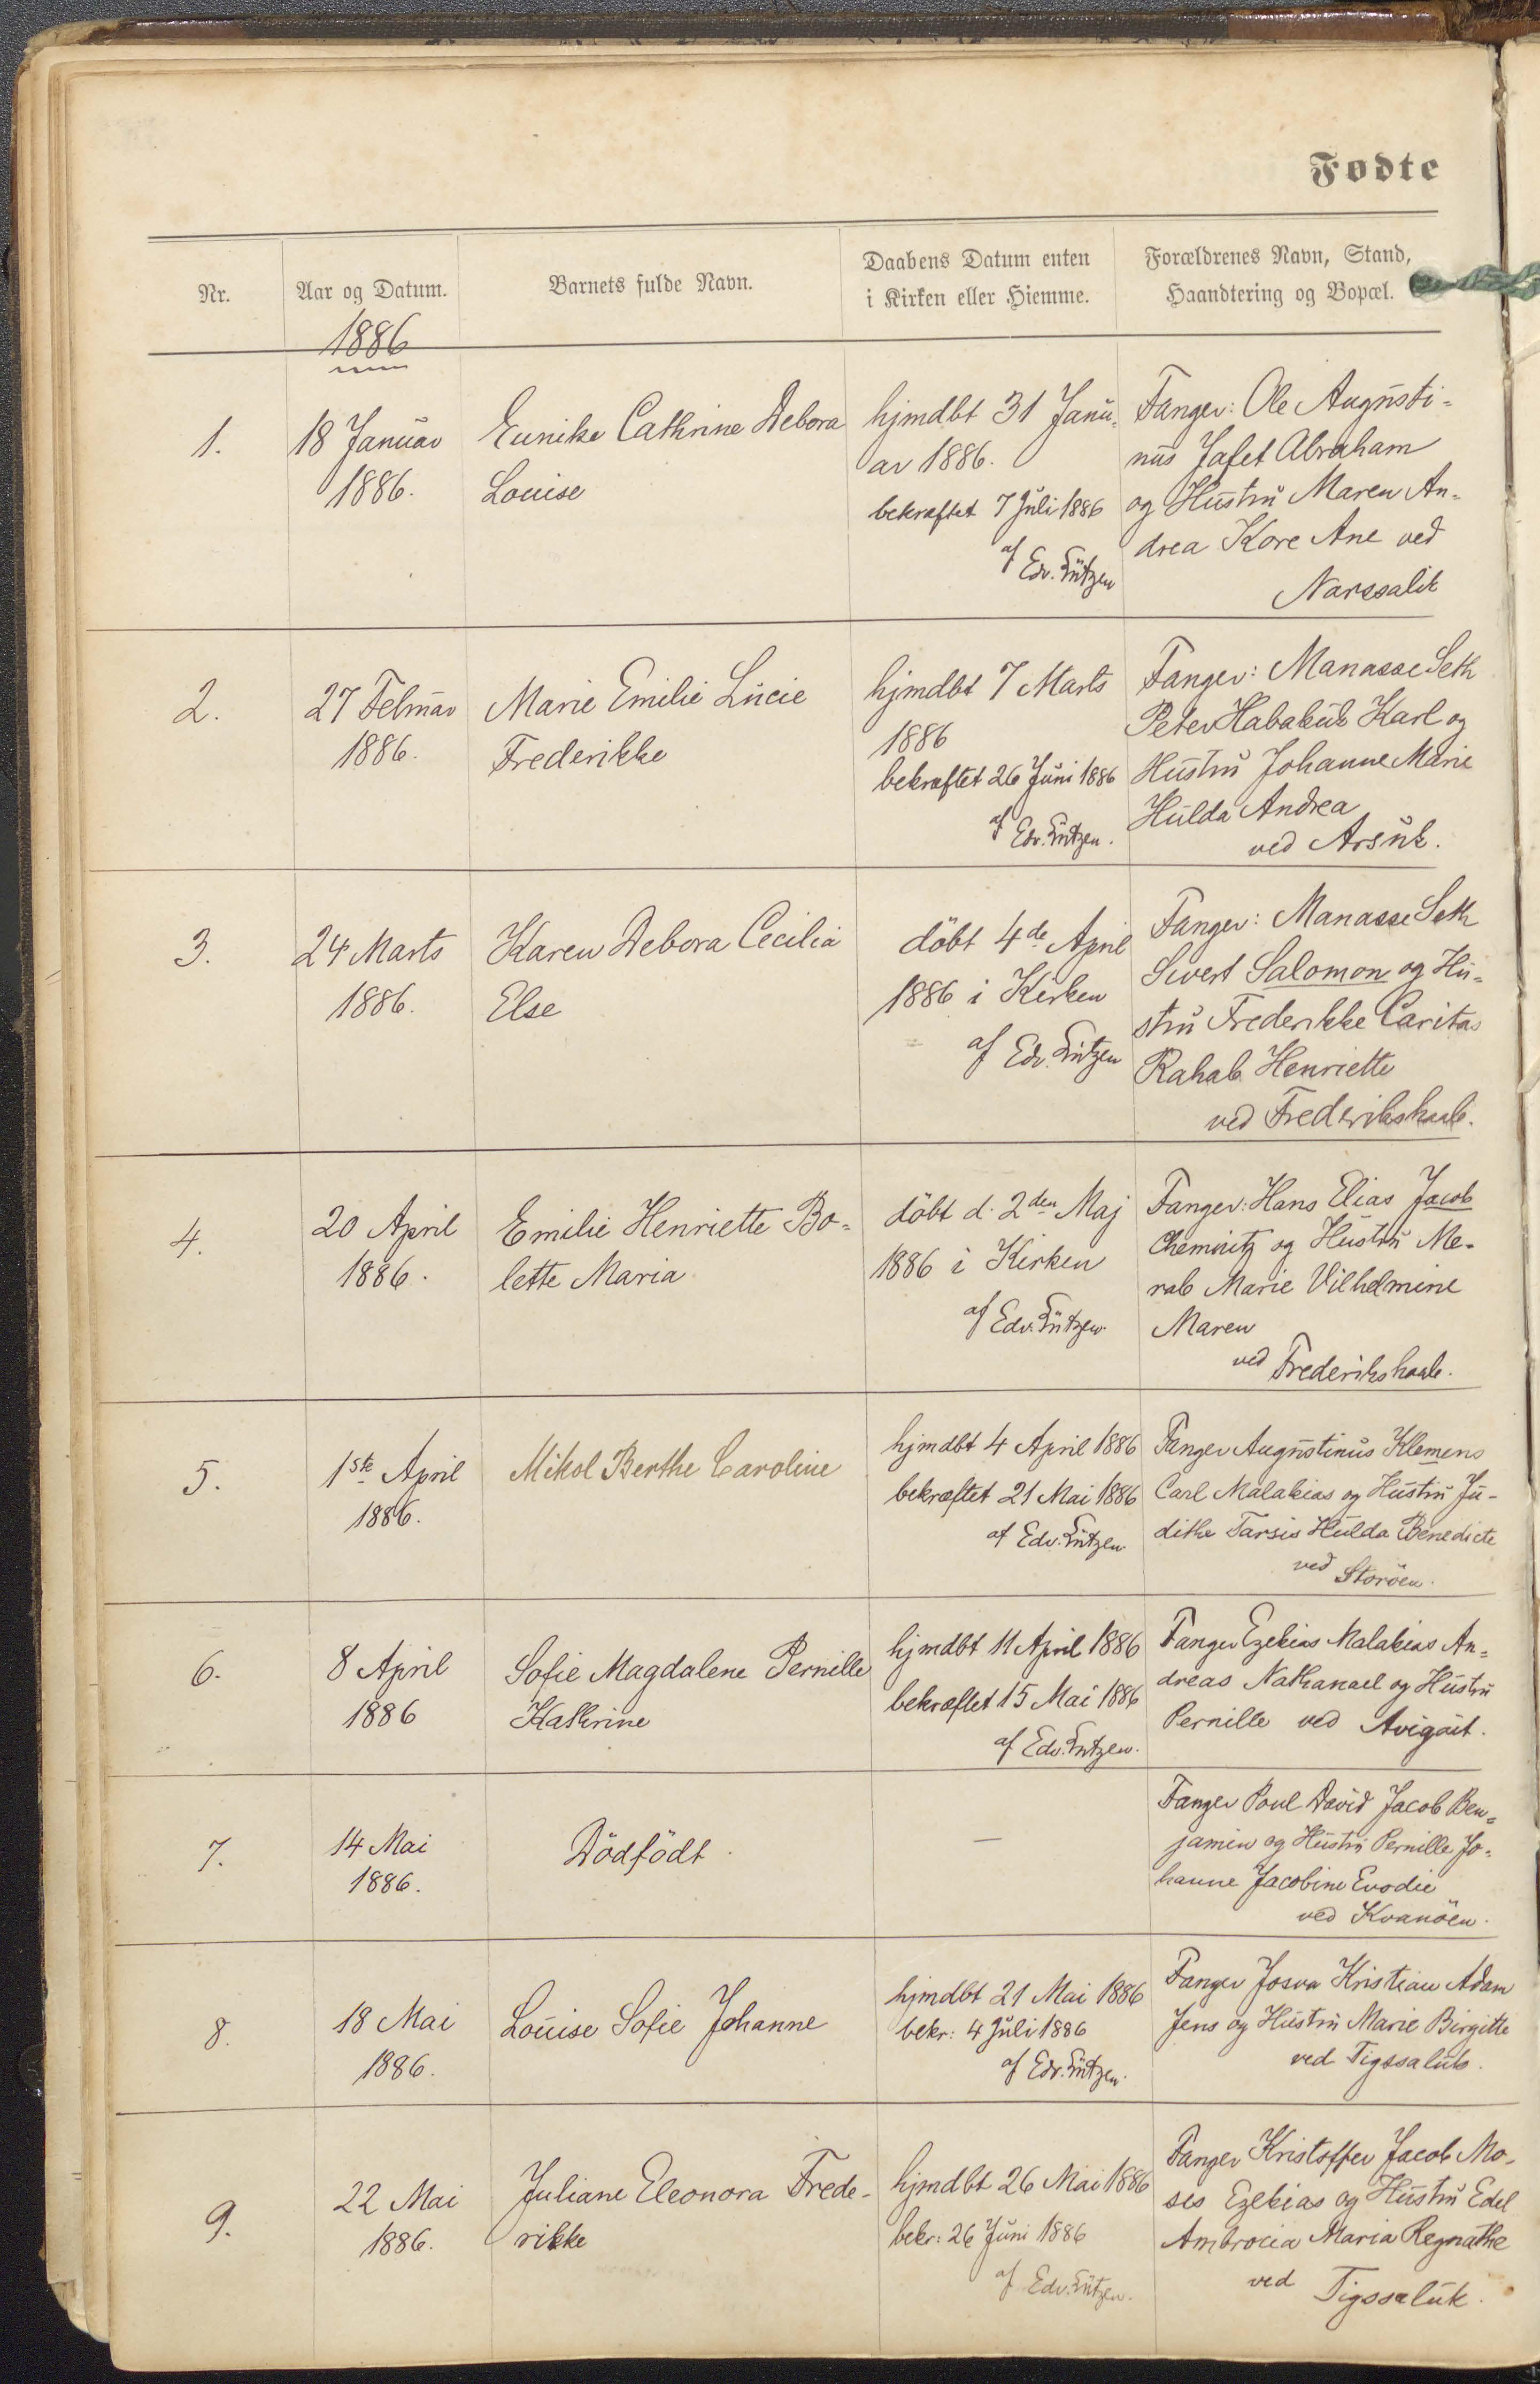 Fødte
Nr.
Aar og Datum.
Barnets fulde Navn.
Daabens Datum enten
i Kirken eller Hiemme.
Forældrenes Navn, Stand,
Haandtering og Bopæl.
1886
1.
18 Januar
1886.
Eunike Cathrine Debora
Louise
hjmdbt 31 Janu-
ar 1886.
bekræftet 7 Juli 1886
af Edv. Lützen
Fanger: Ole Augusti-
nus Jafet Abraham
og Hustru Maren An-
drea Kore Ane ved
Narssalik
2.
27 Februar
1886.
Marie Emilie Lucie
Frederikke
hjmdbt 7 Marts
1886
bekræftet 26 Juni 1886
af Edv. Lützen.
Fanger: Manasse Seth
Peter Habakuk Karl og
Hustru Johanne Marie
Hulda Andrea
ved Arsuk.
3.
24 Marts
1886.
Karen Debora Cecilia
Else
döbt 4de April
1886 i Kirken
af Edv. Lützen
Fanger: Manasse Seth
Sivert Salomon og Hu-
stru Frederikke Caritas
Rahab Henriette
ved Frederikshaab.
4.
20 April
1886.
Emilie Henriette Bo-
lette Maria
döbt d. 2den Maj
1886 i Kirken
af Edv. Lützen
Fanger: Hans Elias Jacob
Chemnitz og Hustru Me-
rab Marie Vilhelmine
Maren
ved Frederikshaab.
5.
1ste April
1886.
Mikol Berthe Caroline
hjmdbt 4 April 1886
bekræftet 21 Mai 1886
af Edv. Lützen
Fanger Augustinus Klemens
Carl Malakias og Hustru Ju-
dithe Tarsis Hulda Benedicte
ved Storöen.
6.
8 April
1886
Sofie Magdalene Pernille
Kathrine
hjmdbt 11 April 1886
bekræftet 15 Mai 1886
af Edv. Lützen.
Fanger Ezekias Malakias An-
dreas Nathanael og Hustru
Pernille ved Avigait.
7.
14 Mai
1886.
Dödfödt.
—
Fanger Poul David Jacob Ben-
jamin og Hustru Pernille Jo-
hanne Jacobine Evodie
ved Kvanöen.
8.
18 Mai
1886.
Louise Sofie Johanne
hjmdbt 21 Mai 1886
bekr: 4 Juli 1886
af Edv. Lützen.
Fanger Josva Kristian Adam
Jens og Hustru Marie Birgitte
ved Tigssaluk.
9.
22 Mai
1886.
Juliane Eleonora Frede-
rikke
hjmdbt 26 Mai 1886
bekr: 26 Juni 1886
af Edv. Lützen.
Fanger Kristoffer Jacob Mo-
ses Ezekias og Hustru Edel
Ambrocia Maria Regnathe
ved Tigssaluk.